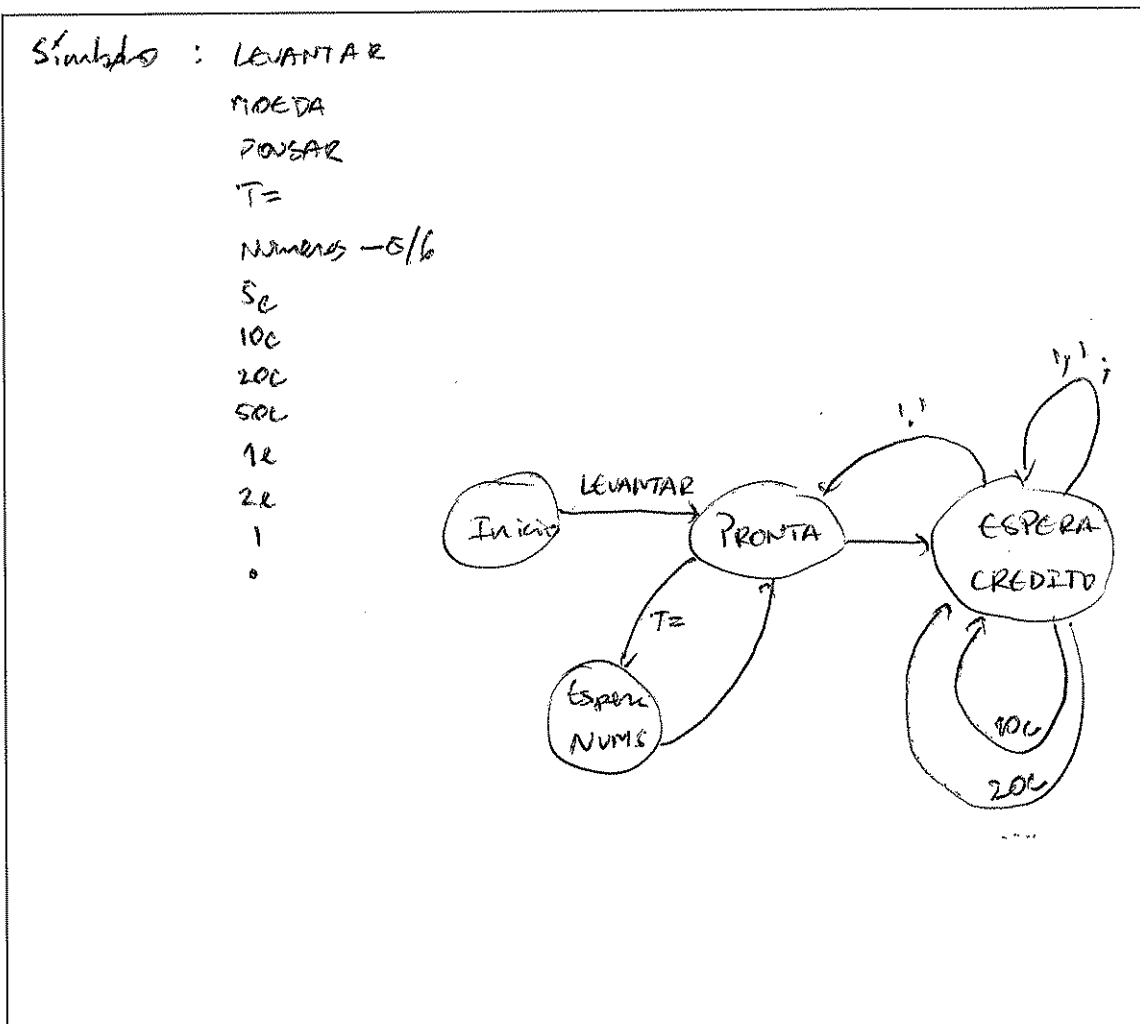 Símbolo : LEVANTAR
MOEDA
POUSAR
T=
Números
5c
10c
20c
50c
1e
2e
,
.
LEVANTAR
Início
PRONTA
'.'
','
ESPERA
CREDITO
T=
Espera
NUMS
10c
20c
....